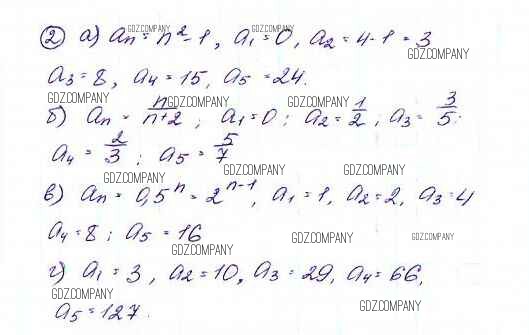 ② а) aₙ = n² - 1, a₁ = 0, a₂ = 4 - 1 = 3
a₃ = 8, a₄ = 15, a₅ = 24.
б) aₙ = n/(n+2); a₁ = 0; a₂ = 1/2; a₃ = 3/5;
a₄ = 2/3; a₅ = 5/7
в) aₙ = 0,5ⁿ = 2ⁿ⁻¹, a₁ = 1, a₂ = 2, a₃ = 4
a₄ = 8; a₅ = 16
г) a₁ = 3, a₂ = 10, a₃ = 29, a₄ = 66,
a₅ = 127.
GDZ.COMPANY
GDZ.COMPANY
GDZ.COMPANY
GDZ.COMPANY
GDZ.COMPANY
GDZ.COMPANY
GDZ.COMPANY
GDZ.COMPANY
GDZ.COMPANY
GDZ.COMPANY
GDZ.COMPANY
GDZ.COMPANY
GDZ.COMPANY
GDZ.COMPANY